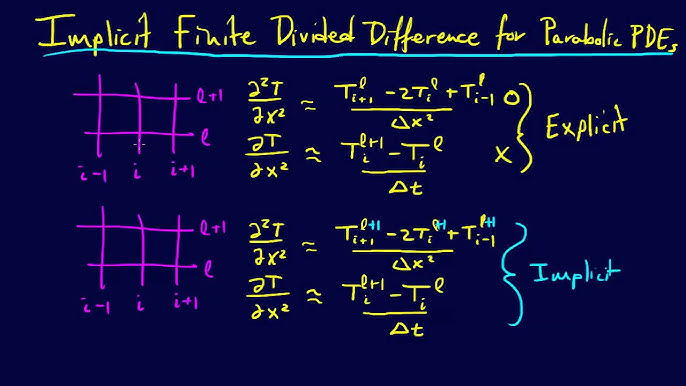 Implicit Finite Divided Difference for Parabolic PDEs
l+1
l
i-1 i i+1
∂²T/∂x² ≈ (T_{i+1}^l - 2T_i^l + T_{i-1}^l)/Δx² O
∂T/∂x² ≈ (T_i^{l+1} - T_i^l)/Δt X
Explicit
l+1
l
i-1 i i+1
∂²T/∂x² ≈ (T_{i+1}^{l+1} - 2T_i^{l+1} + T_{i-1}^{l+1})/Δx²
∂T/∂x² ≈ (T_i^{l+1} - T_i^l)/Δt
Implicit